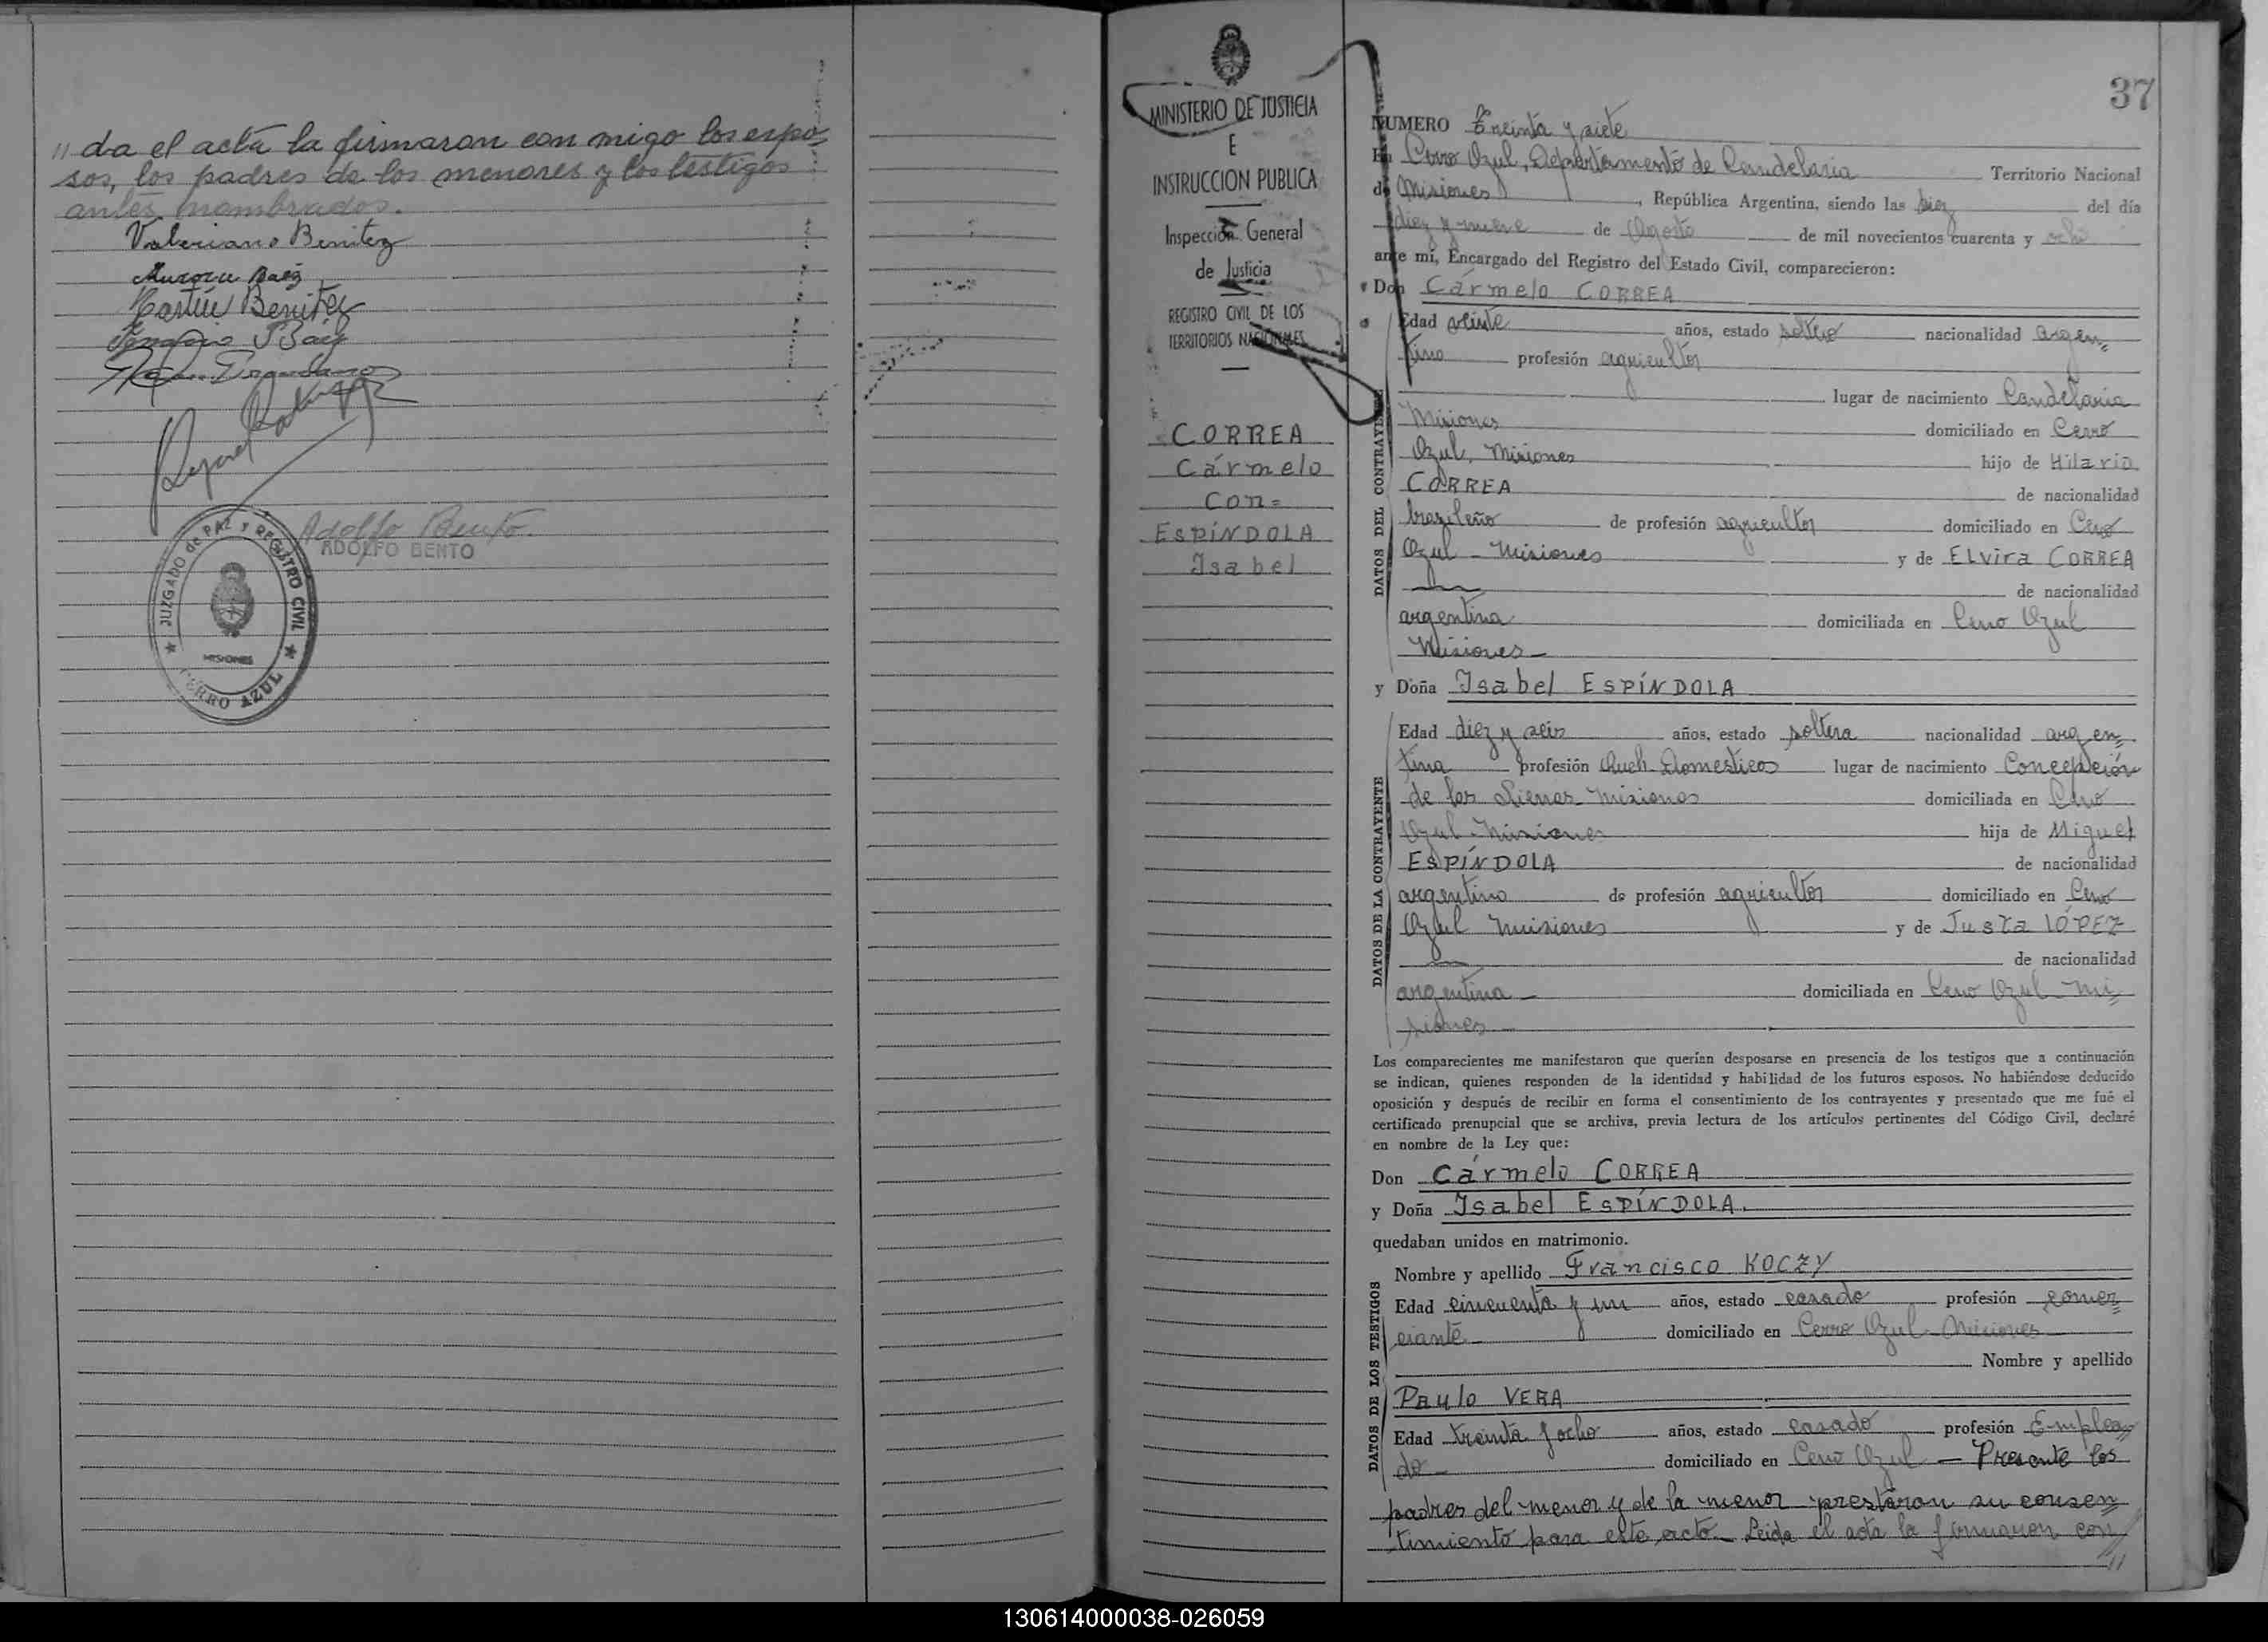 // da el acta la firmaron con migo los espo-
sos, los padres de los menores y los testigos
antes nombrados.
Valeriano Benitez
Aurora Baez
Martín Benitez
Ignacio Báez
ADOLFO BENTO
Adolfo Bento.
JUZGADO de PAZ y REGISTRO CIVIL
MISIONES
CERRO AZUL
MINISTERIO DE JUSTICIA
E
INSTRUCCION PUBLICA
Inspección General
de Justicia
REGISTRO CIVIL DE LOS
TERRITORIOS NACIONALES
CORREA
Cármelo
Con=
ESPÍNDOLA
Isabel
37
NUMERO Treinta y siete
En Cerro Azul, Departamento de Candelaria Territorio Nacional
de Misiones, República Argentina, siendo las diez del día
diez y nueve de Agosto de mil novecientos cuarenta y ocho
ante mi, Encargado del Registro del Estado Civil, comparecieron:
Don Cármelo CORREA
DATOS DEL CONTRAYENTE
Edad veinte años, estado soltero nacionalidad argen=
tino profesión agricultor
lugar de nacimiento Candelaria
Misiones domiciliado en Cerro
Azul, Misiones hijo de Hilario
CORREA de nacionalidad
brasileño de profesión agricultor domiciliado en Cerro
Azul - Misiones y de ELvira CORREA
de nacionalidad
argentina domiciliada en Cerro Azul
Misiones -
y Doña Isabel ESPÍNDOLA
DATOS DE LA CONTRAYENTE
Edad diez y seis años, estado soltera nacionalidad argen=
tina profesión Queh. Domesticos lugar de nacimiento Concepción
de las Sierras - Misiones domiciliada en Cerro
Azul - Misiones hija de Miguel
ESPÍNDOLA de nacionalidad
argentino de profesión agricultor domiciliado en Cerro
Azul Misiones y de Justa LÓPEZ
de nacionalidad
argentina - domiciliada en Cerro Azul - Mi=
siones -
Los comparecientes me manifestaron que querían desposarse en presencia de los testigos que a continuación
se indican, quienes responden de la identidad y habilidad de los futuros esposos. No habiéndose deducido
oposición y después de recibir en forma el consentimiento de los contrayentes y presentado que me fué el
certificado prenupcial que se archiva, previa lectura de los artículos pertinentes del Código Civil, declaré
en nombre de la Ley que:
Don Cármelo CORREA
y Doña Isabel ESPÍNDOLA.
quedaban unidos en matrimonio.
DATOS DE LOS TESTIGOS
Nombre y apellido Francisco KOCZY
Edad cincuenta y un años, estado casado profesión comer=
ciante domiciliado en Cerro Azul - Misiones
Nombre y apellido
Paulo VERA
Edad treinta y ocho años, estado casado profesión Emplea=
do - domiciliado en Cerro Azul - Presente los
padres del menor y de la menor prestaron su consen=
timiento para este acto - Leida el acta la firmaron con
//
130614000038-026059